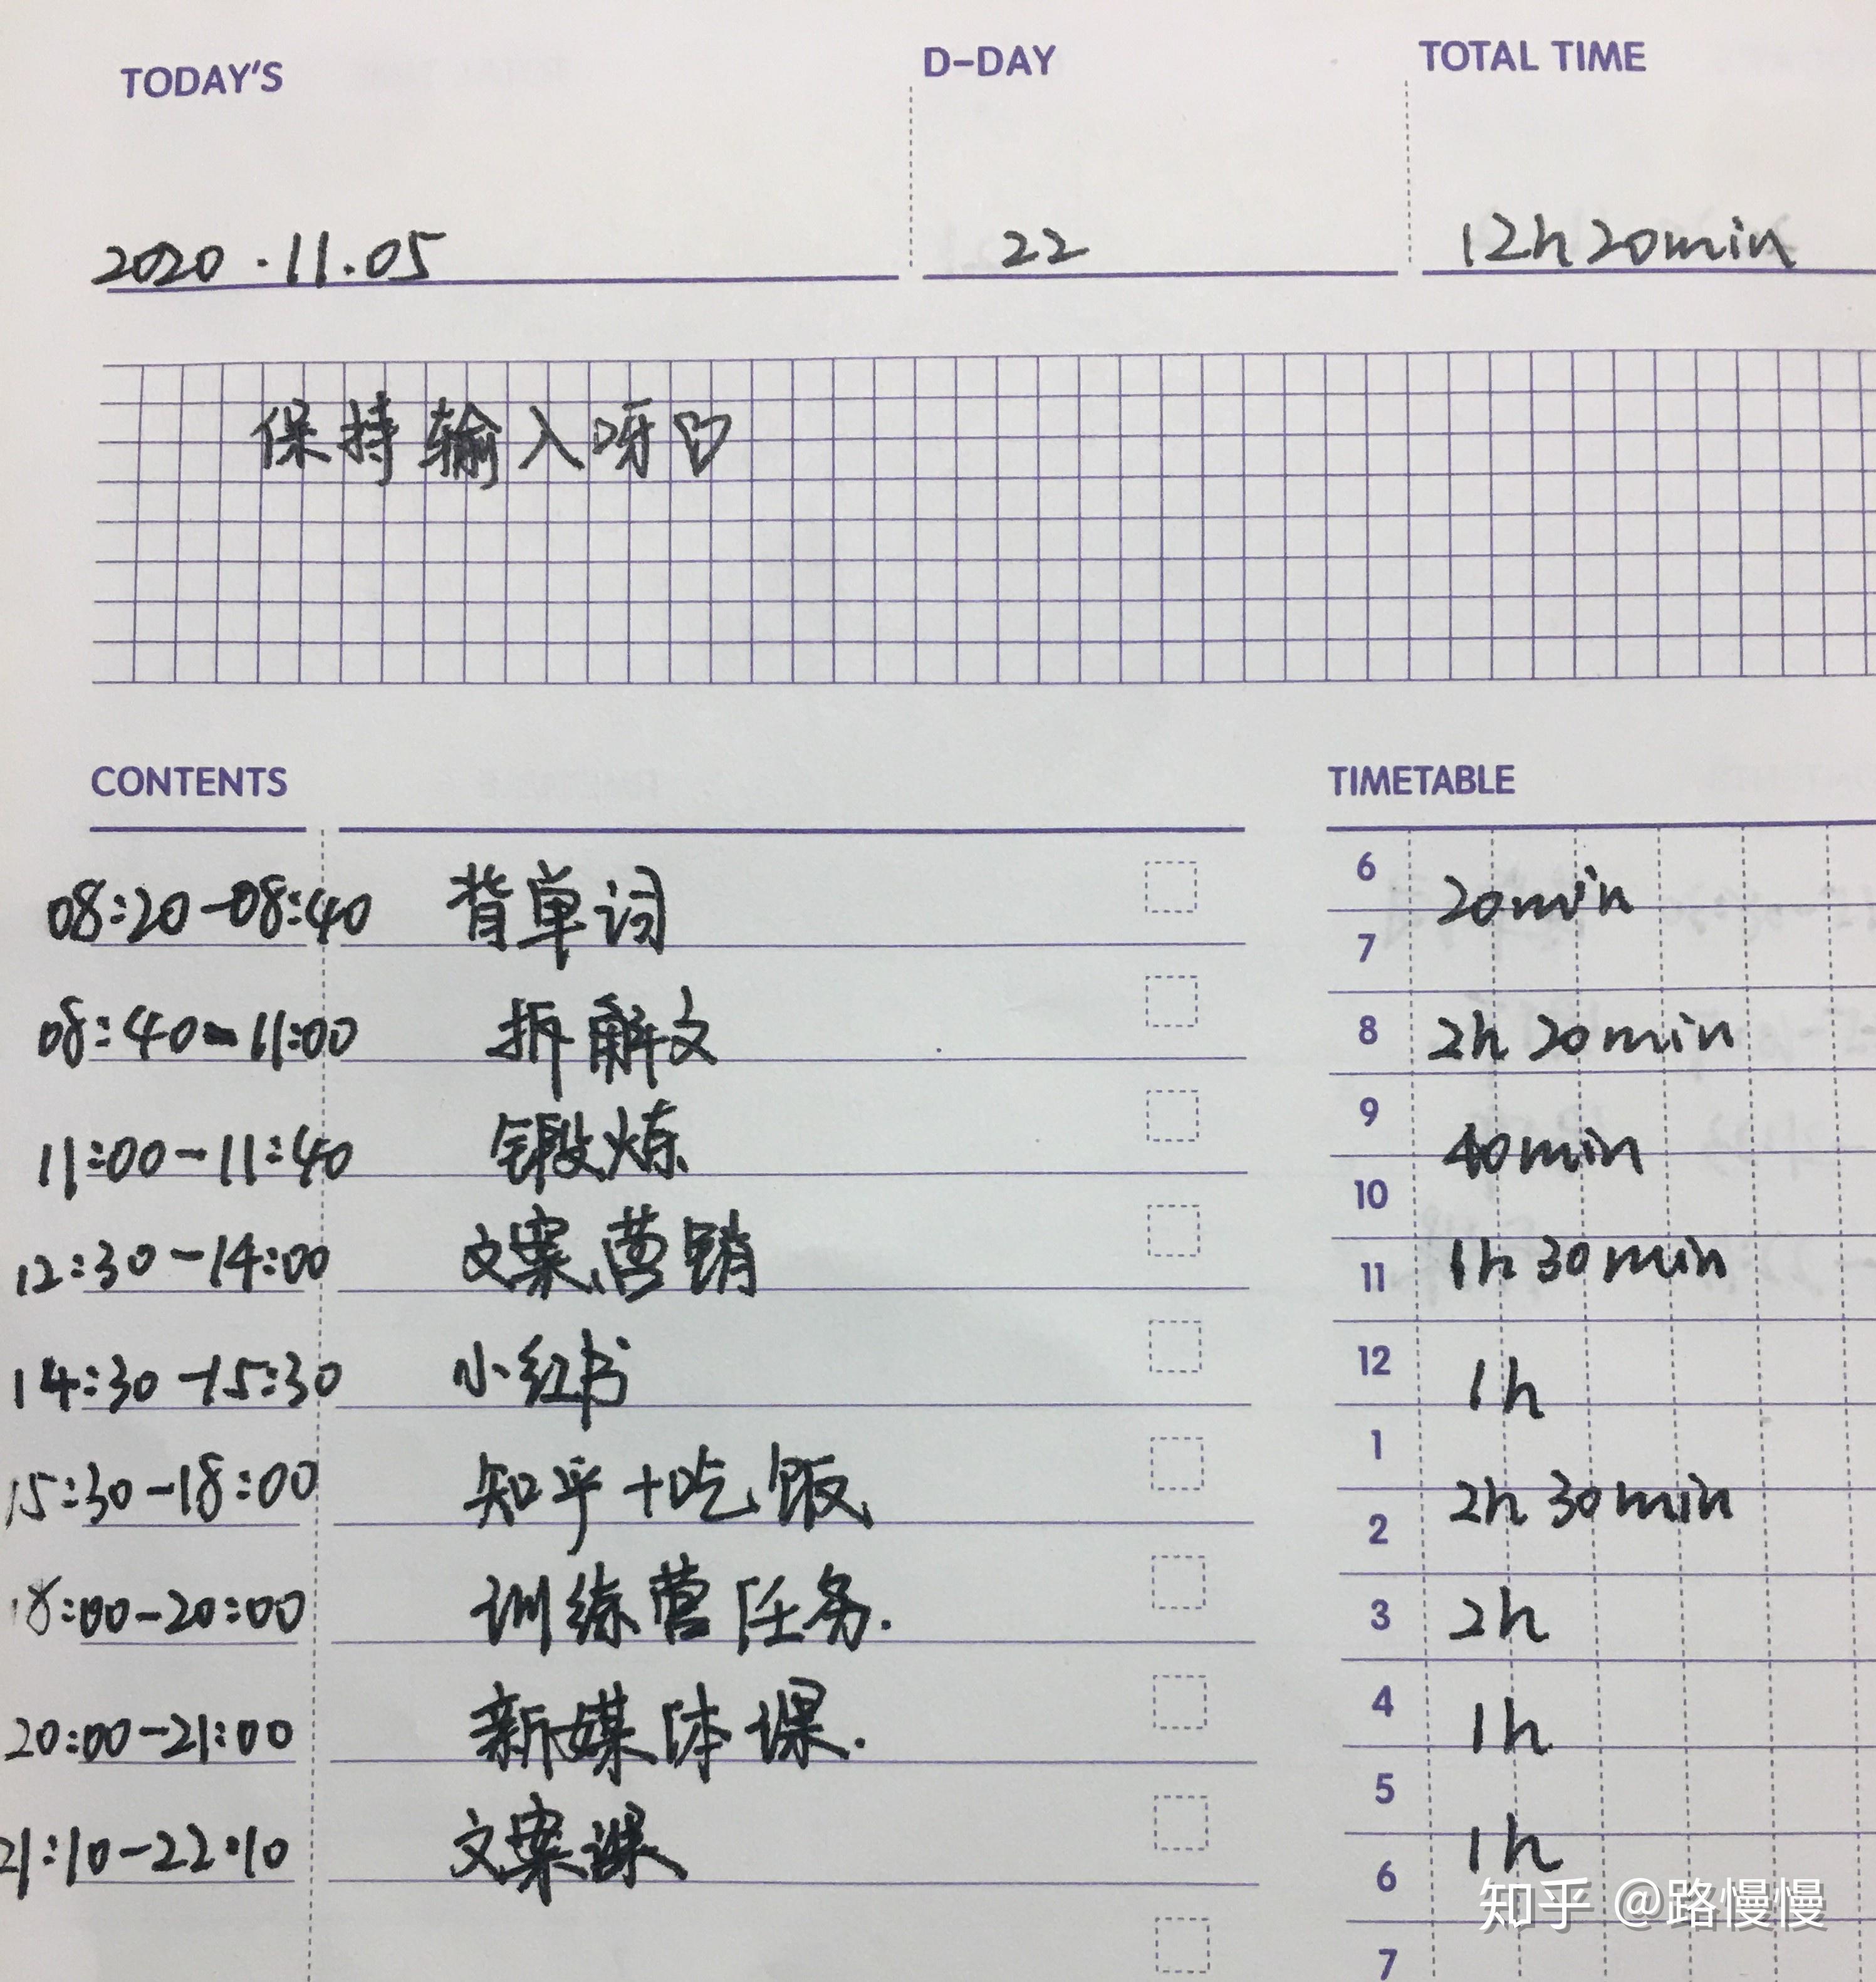 TODAY'S D-DAY TOTAL TIME
2020.11.05 22 12h 20min
保持输入呀
CONTENTS TIMETABLE
08:20-08:40 背单词 6 20min
7
08:40-11:00 拆解文 8 2h 20min
9
11:00-11:40 锻炼 40min
10
12:30-14:00 文案、营销 11 1h 30min
14:30-15:30 小红书 12 1h
1
15:30-18:00 知乎+吃饭 2h 30min
2
18:00-20:00 训练营任务. 3 2h
20:00-21:00 新媒体课. 4 1h
5
21:10-22:10 文案课 6 1h
知乎 @路慢慢
7